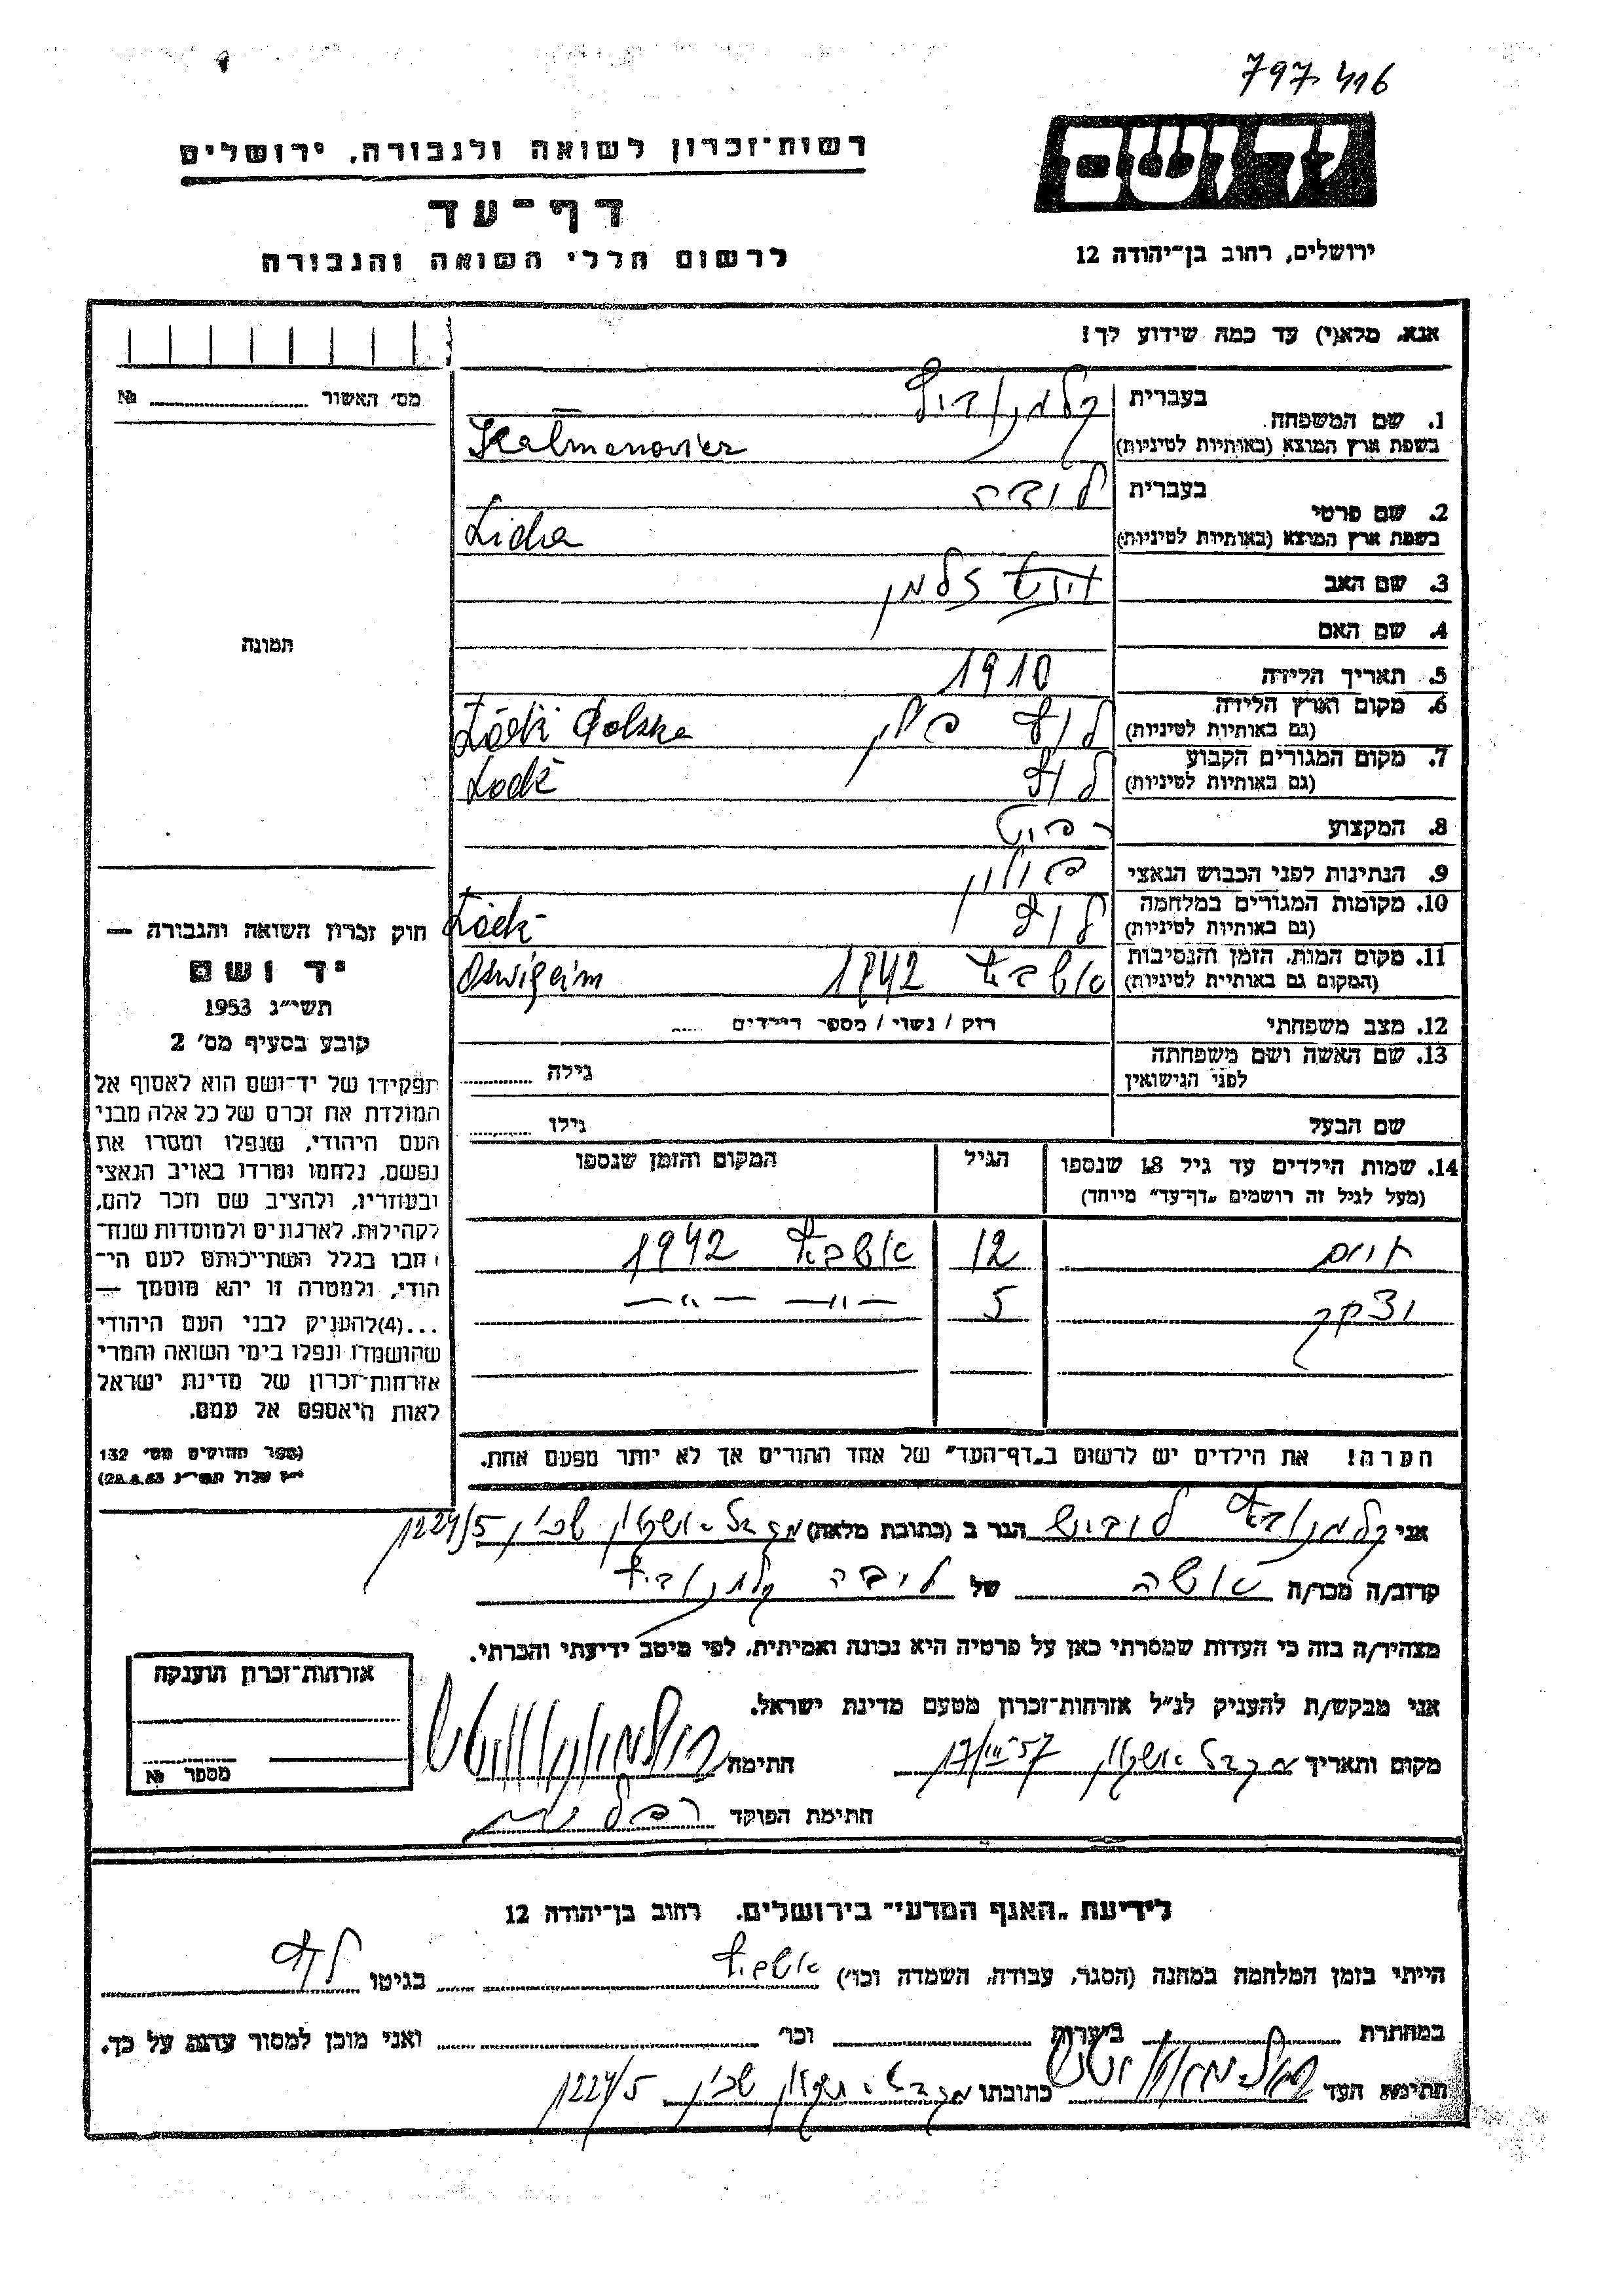 797 416
יד ושם
רשות־זכרון לשואה ולגבורה, ירושלים
דף־עד
לרשום חללי השואה והגבורה
ירושלים, רחוב בן־יהודה 12
אנא, מלא(י) עד כמה שידוע לך!
מס׳ האשור №
1. שם המשפחה
בעברית קלמנוביץ
בשפת ארץ המוצא (באותיות לטיניות) Kalmenowicz
2. שם פרטי
בעברית
בשפת ארץ המוצא (באותיות לטיניות)
3. שם האב זלמן
4. שם האם
תמונה
5. תאריך הלידה 1910
6. מקום וארץ הלידה
(גם באותיות לטיניות) לודז פולין Łódź Polska
7. מקום המגורים הקבוע
(גם באותיות לטיניות) לודז Łodź
8. המקצוע
9. הנתינות לפני הכבוש הנאצי פולין
10. מקומות המגורים במלחמה
(גם באותיות לטיניות) לודז Łódź
11. מקום המות, הזמן והנסיבות
(המקום גם באותיות לטיניות) אושביץ 1942 Oswięcim
12. מצב משפחתי רוק / נשוי / מספר הילדים
13. שם האשה ושם משפחתה
לפני הנישואין גילה
שם הבעל גילו
14. שמות הילדים עד גיל 18 שנספו
(מעל לגיל זה רושמים „דף־עד” מיוחד)
הגיל
המקום והזמן שנספו
12 אושביץ 1942
יצחק 5 — ״ — ״ —
הערה! את הילדים יש לרשום ב„דף־העד” של אחד ההורים אך לא יותר מפעם אחת.
חוק זכרון השואה והגבורה —
יד ושם
תשי״ג 1953
קובע בסעיף מס׳ 2
תפקידו של יד־ושם הוא לאסוף אל
המולדת את זכרם של כל אלה מבני
העם היהודי, שנפלו ומסרו את
נפשם, נלחמו ומרדו באויב הנאצי
ובעוזריו, ולהציב שם וזכר להם,
לקהילות, לארגונים ולמוסדות שנח־
רבו בגלל השתייכותם לעם הי־
הודי, ולמטרה זו יהא מוסמך —
...(4) להעניק לבני העם היהודי
שהושמדו ונפלו בימי השואה והמרי
אזרחות־זכרון של מדינת ישראל
לאות היאספם אל עמם.
(ספר החוקים מס׳ 132
אני קלמנוביץ הגר ב (כתובת מלאה) מגדל-אשקלון שכון 1224/5
קרוב/ה מכר/ה אשה של קלמנוביץ
מצהיר/ה בזה כי העדות שמסרתי כאן על פרטיה היא נכונה ואמיתית, לפי מיטב ידיעתי והכרתי.
אני מבקש/ת להעניק לנ״ל אזרחות־זכרון מטעם מדינת ישראל.
מקום ותאריך מגדל-אשקלון חתימה
חתימת הפוקד
אזרחות־זכרון הוענקה
מספר №
לידיעת „האגף המדעי” בירושלים, רחוב בן־יהודה 12
הייתי בזמן המלחמה במחנה (הסגר, עבודה, השמדה וכו׳) אושביץ בגיטו לודז
במחתרת ביערות וכו׳ ואני מוכן למסור עדות על כך.
חתימת העד כתובתו מגדל-אשקלון שכון 1224/5